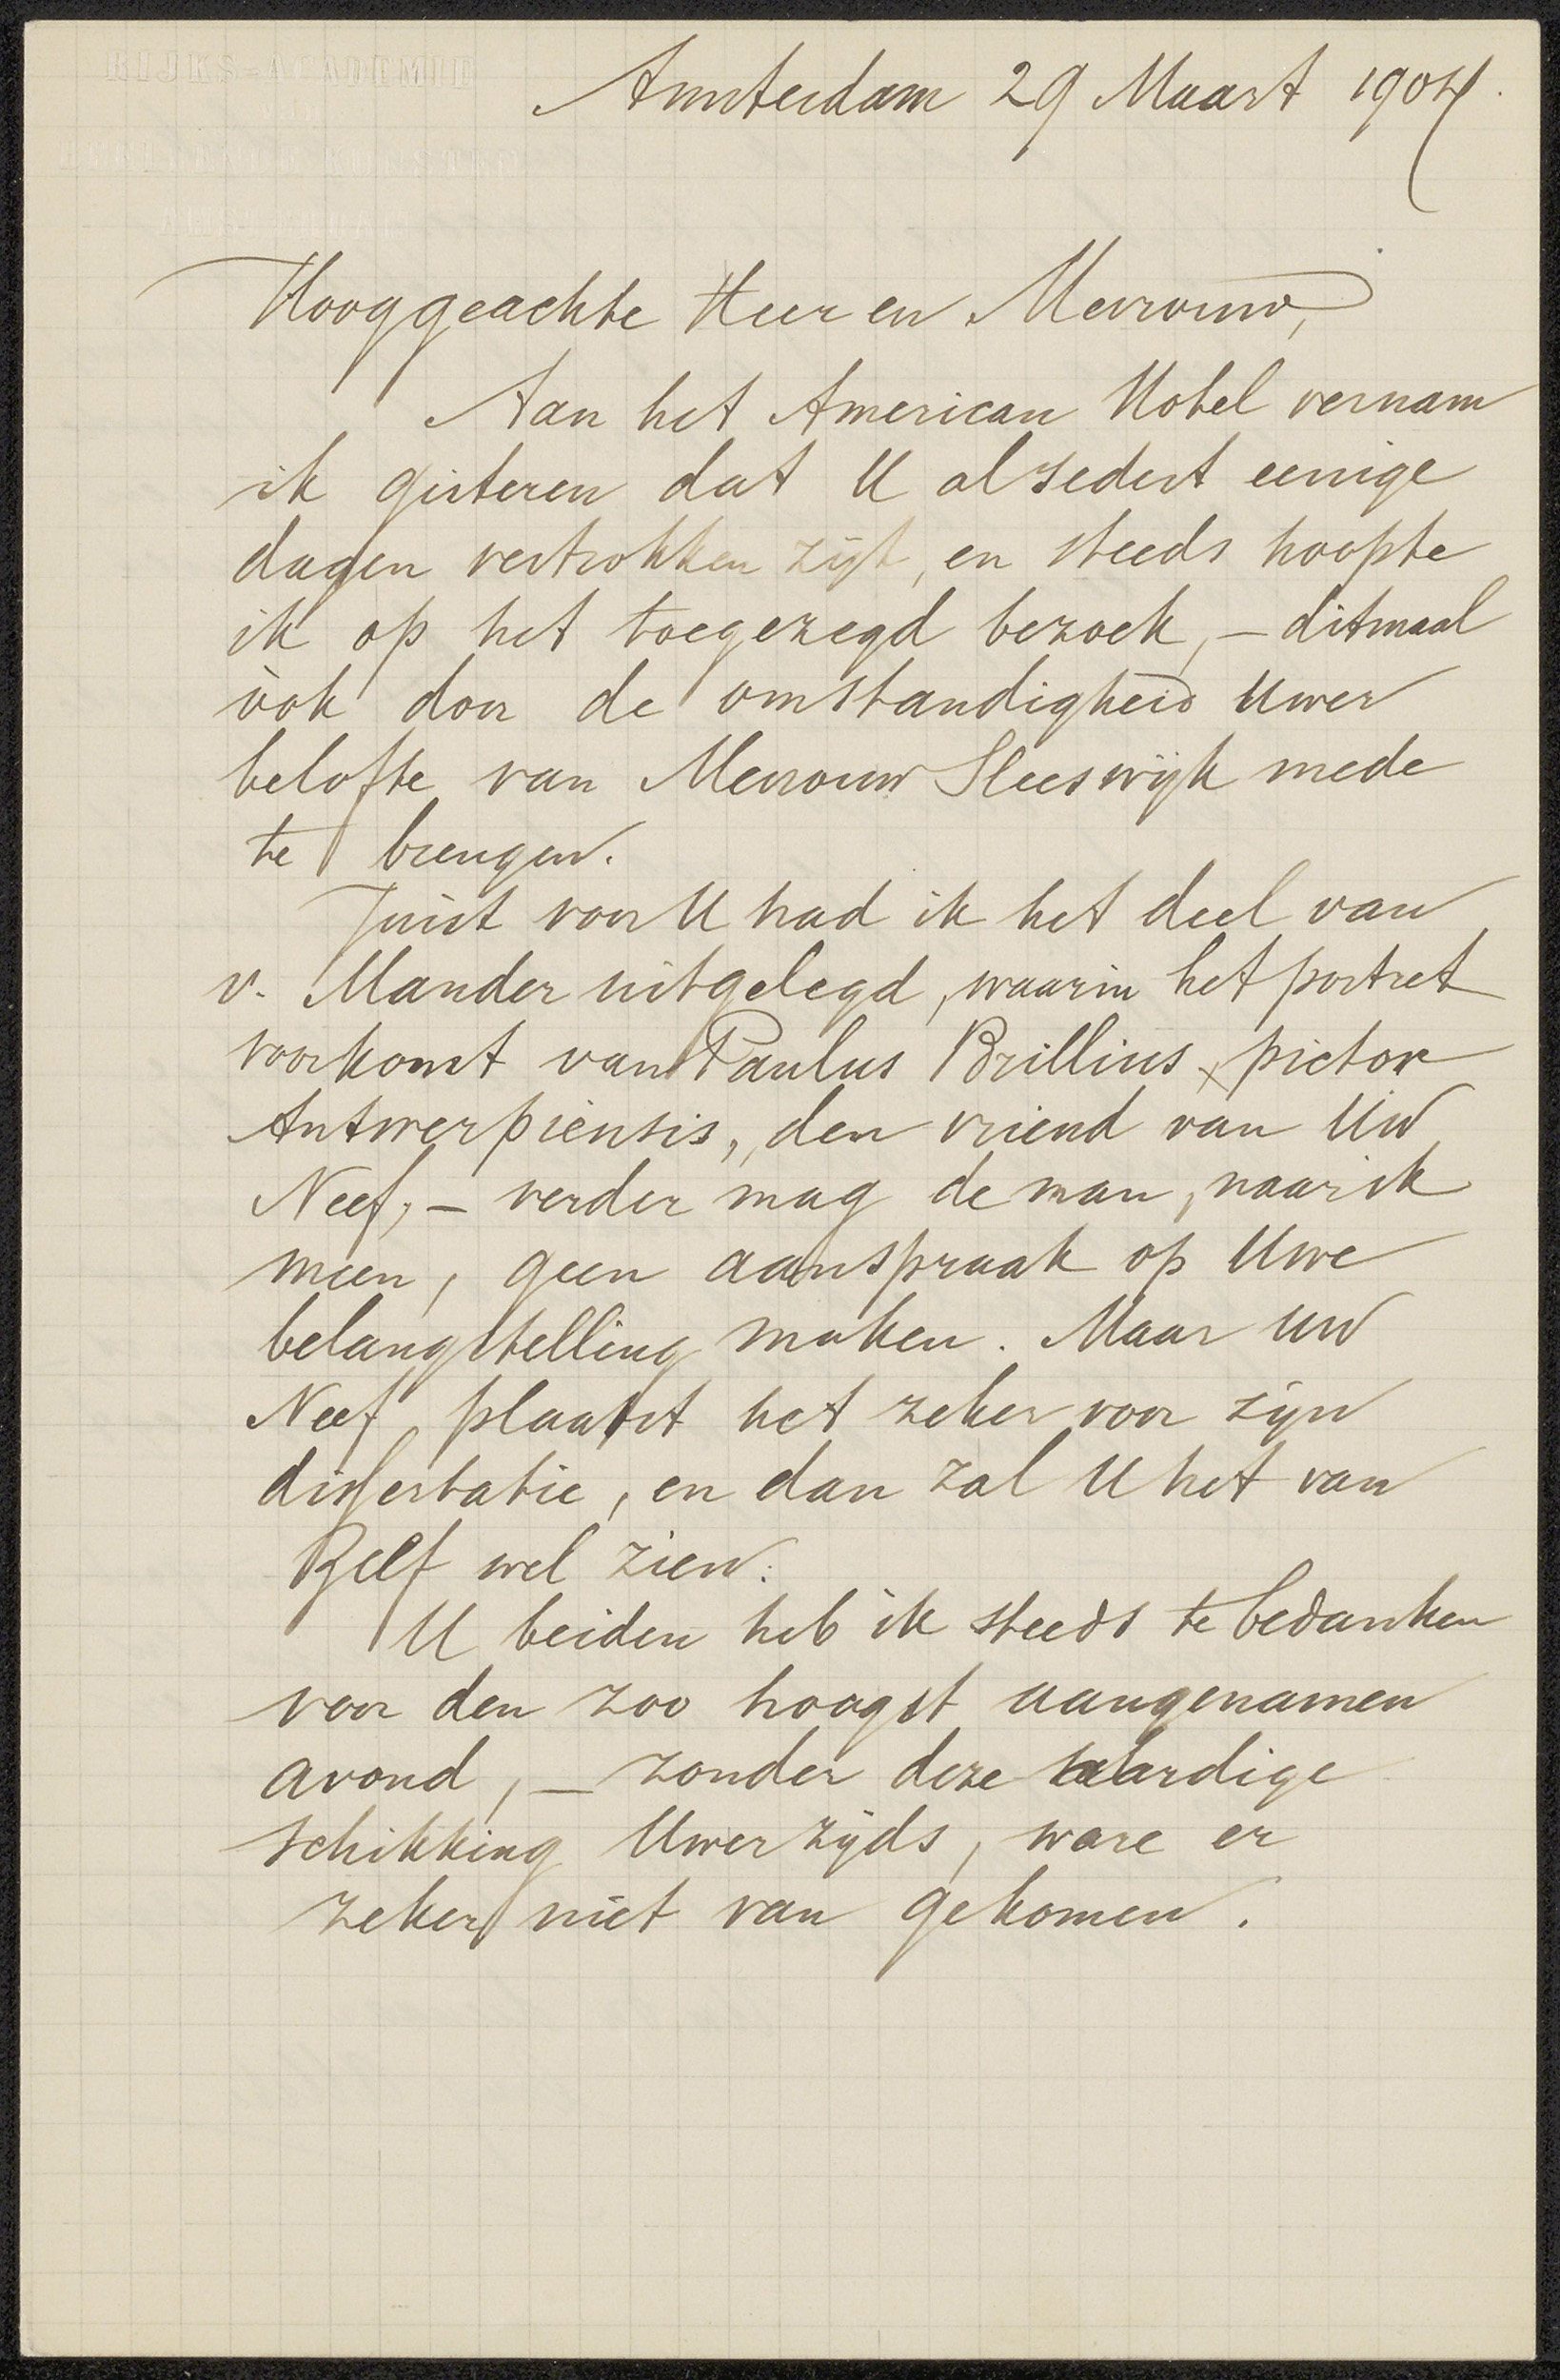 RIJKS=ACADEMIE
Amsterdam 29 Maart 1904.
Hooggeachte Heer en Mevrouw,
Aan het American Hotel vernam
ik gisteren dat U al sedert eenige
dagen vertrokken zijt, en steeds hoopte
ik op het toegezegd bezoek, – ditmaal
òok door de omstandigheid Uwer
belofte van Mevrouw Sleeswijk mede
te brengen.
Juist voor U had ik het deel van
v. Mander uitgelegd, waarin het portret
voorkomt van Paulus Brillius, pictor
Antwerpiensis, den vriend van Uw
Neef, – verder mag de man, naar ik
meen, geen aanspraak op Uwe
belangstelling maken. Maar uw
Neef plaatst het zeker voor zijn
dissertatie, en dan zal U het van
Zelf wel zien.
U beiden heb ik steeds te bedanken
voor den zoo hoogst aangenamen
avond, – zonder deze aardige
schikking Uwer zijds, ware er
zeker niet van gekomen.